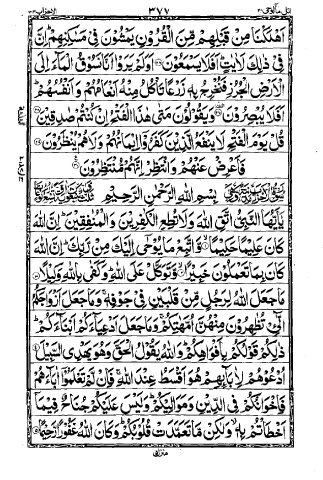 اتل مآ اوحی ٢١ ٣٧٧ الاحزاب ٣٣
اَهْلَكْنَا مِنْ قَبْلِهِمْ مِّنَ الْقُرُوْنِ يَمْشُوْنَ فِيْ مَسٰكِنِهِمْ اِنَّ
فِيْ ذٰلِكَ لَاٰيٰتٍ اَفَلَا يَسْمَعُوْنَ اَوَلَمْ يَرَوْا اَنَّا نَسُوْقُ الْمَآءَ اِلَى
الْاَرْضِ الْجُرُزِ فَنُخْرِجُ بِهٖ زَرْعًا تَاْكُلُ مِنْهُ اَنْعَامُهُمْ وَاَنْفُسُهُمْ
اَفَلَا يُبْصِرُوْنَ وَيَقُوْلُوْنَ مَتٰى هٰذَا الْفَتْحُ اِنْ كُنْتُمْ صٰدِقِيْنَ
قُلْ يَوْمَ الْفَتْحِ لَا يَنْفَعُ الَّذِيْنَ كَفَرُوْٓا اِيْمَانُهُمْ وَلَا هُمْ يُنْظَرُوْنَ
فَاَعْرِضْ عَنْهُمْ وَانْتَظِرْ اِنَّهُمْ مُّنْتَظِرُوْنَ
بِسْمِ اللّٰهِ الرَّحْمٰنِ الرَّحِيْمِ
يٰٓاَيُّهَا النَّبِيُّ اتَّقِ اللّٰهَ وَلَا تُطِعِ الْكٰفِرِيْنَ وَالْمُنٰفِقِيْنَ اِنَّ اللّٰهَ
كَانَ عَلِيْمًا حَكِيْمًا وَّاتَّبِعْ مَا يُوْحٰٓى اِلَيْكَ مِنْ رَّبِّكَ اِنَّ اللّٰهَ
كَانَ بِمَا تَعْمَلُوْنَ خَبِيْرًا وَّتَوَكَّلْ عَلَى اللّٰهِ وَكَفٰى بِاللّٰهِ وَكِيْلًا
مَا جَعَلَ اللّٰهُ لِرَجُلٍ مِّنْ قَلْبَيْنِ فِيْ جَوْفِهٖ وَمَا جَعَلَ اَزْوَاجَكُمُ
الّٰٓـِٔيْ تُظٰهِرُوْنَ مِنْهُنَّ اُمَّهٰتِكُمْ وَمَا جَعَلَ اَدْعِيَآءَكُمْ اَبْنَآءَكُمْ
ذٰلِكُمْ قَوْلُكُمْ بِاَفْوَاهِكُمْ وَاللّٰهُ يَقُوْلُ الْحَقَّ وَهُوَ يَهْدِي السَّبِيْلَ
اُدْعُوْهُمْ لِاٰبَآئِهِمْ هُوَ اَقْسَطُ عِنْدَ اللّٰهِ فَاِنْ لَّمْ تَعْلَمُوْٓا اٰبَآءَهُمْ
فَاِخْوَانُكُمْ فِي الدِّيْنِ وَمَوَالِيْكُمْ وَلَيْسَ عَلَيْكُمْ جُنَاحٌ فِيْمَآ
اَخْطَاْتُمْ بِهٖ وَلٰكِنْ مَّا تَعَمَّدَتْ قُلُوْبُكُمْ وَكَانَ اللّٰهُ غَفُوْرًا رَّحِيْمًا